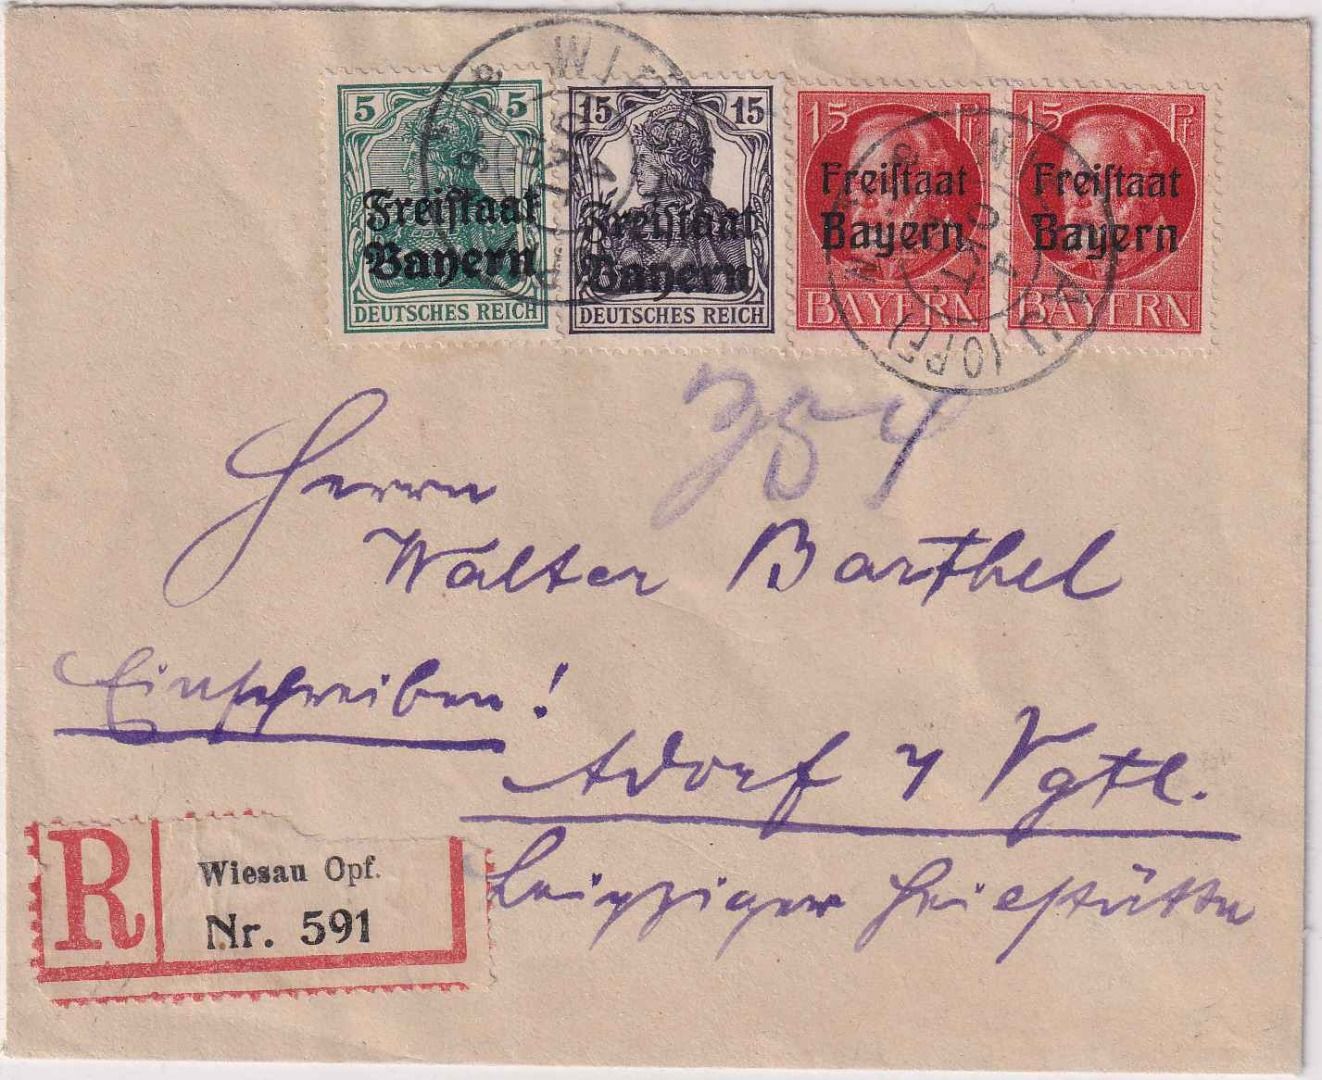 5 5
Freiſtaat
Bayern
DEUTSCHES REICH
15 15
Freiſtaat
Bayern
DEUTSCHES REICH
15 Pf
Freiſtaat
Bayern
BAYERN
15 Pf
Freiſtaat
Bayern
BAYERN
WIESAU (OPF)
354
Herrn
Walter Barthel
Einschreiben!
Adorf Vgtl.
Leipziger
R
Wiesau Opf.
Nr. 591